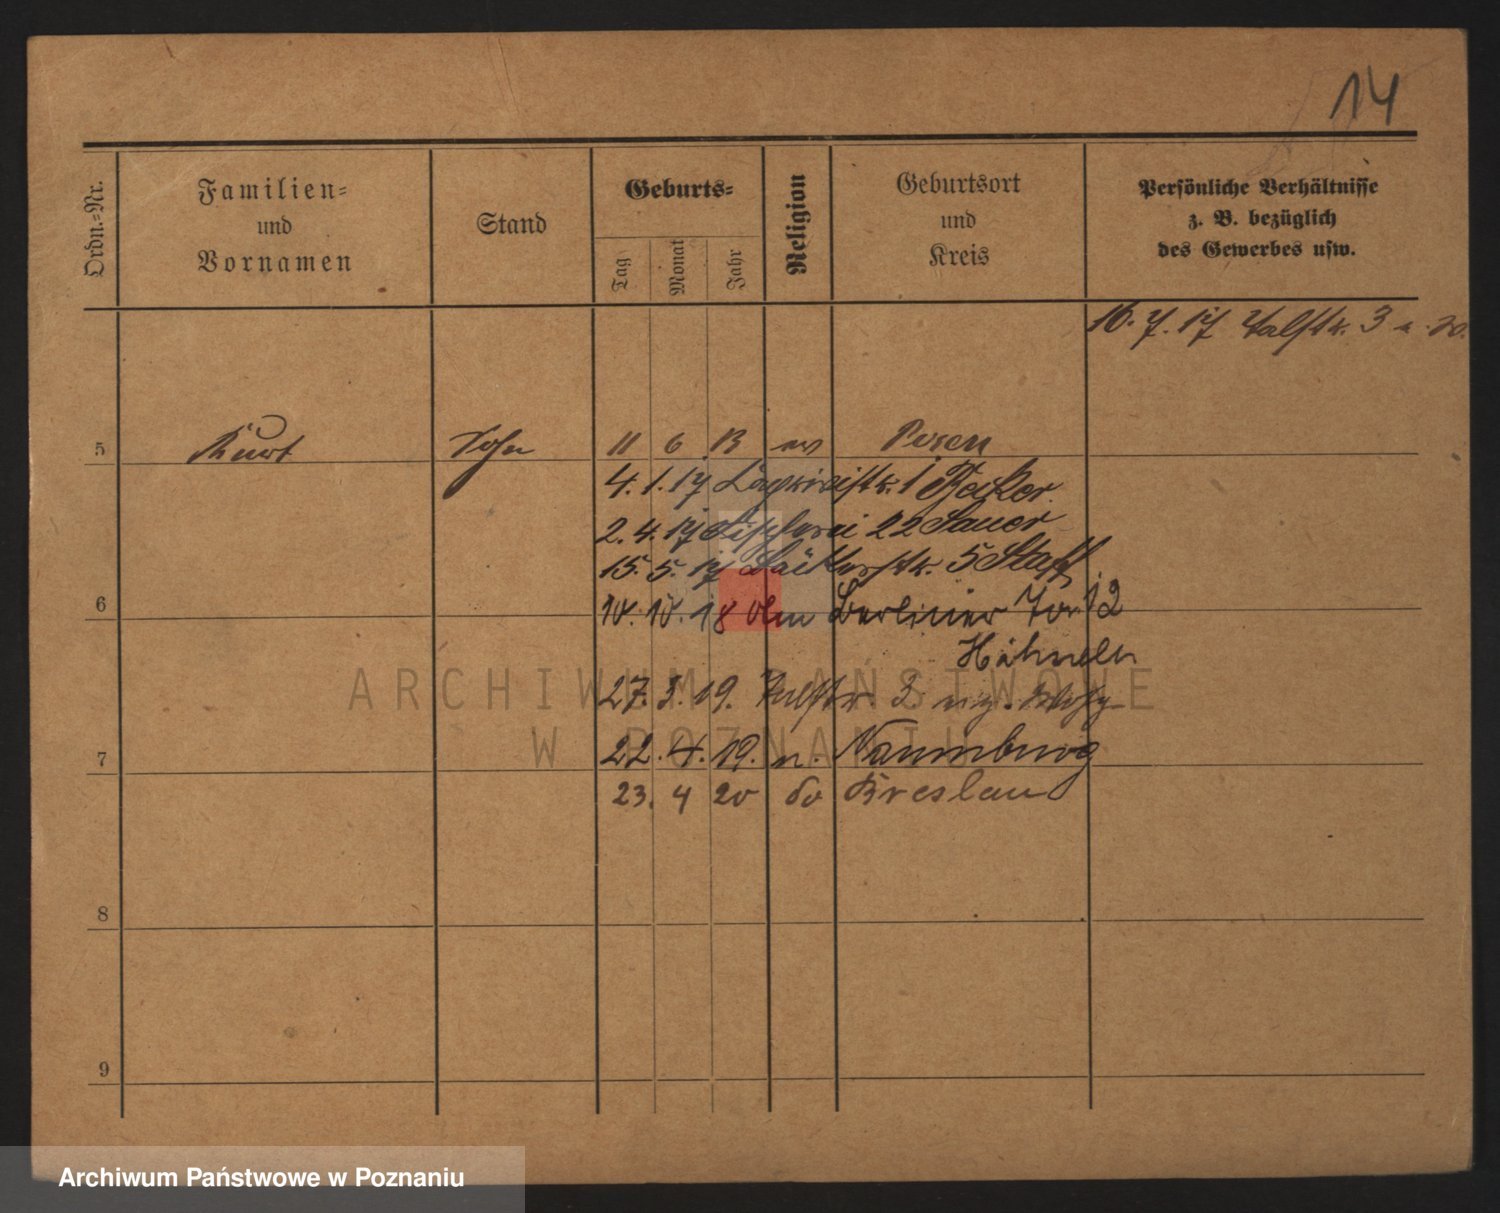 14
Ordn.=Nr.
Familien=
und
Vornamen
Stand
Geburts=
Tag
Monat
Jahr
Religion
Geburtsort
und
Kreis
Persönliche Verhältnisse
z. B. bezüglich
des Gewerbes usw.
16. 7. 17 3
5 Kurt Sohn 11 6 13 ev Posen
4. 1. 17 1 Becker
2. 4. 17 Fischerei 22 Sauer
15. 5. 17 5
6
10. 10. 18 Berliner Tor 12
Hähneln
27. 3. 19. 3
7
22. 4. 19. n. Naumburg
23. 4 20 do Breslau
8
9
ARCHIWUM PAŃSTWOWE
W POZNANIU
Archiwum Państwowe w Poznaniu